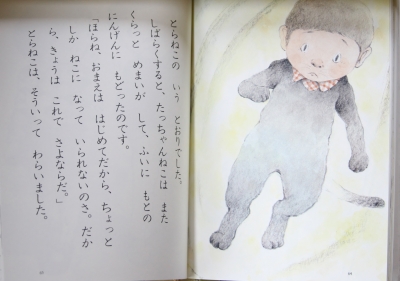 とらねこの　いう　とおりでした。
しばらくすると、たっちゃんねこは　また
くらっと　めまいが　して、ふいに　もとの
にんげんに　もどったのです。
「ほらね、おまえは　はじめてだから、ちょっと
しか　ねこに　なって　いられないのさ。だか
ら、きょうは　これで　さよならだ。」
とらねこは、そういって　わらいました。